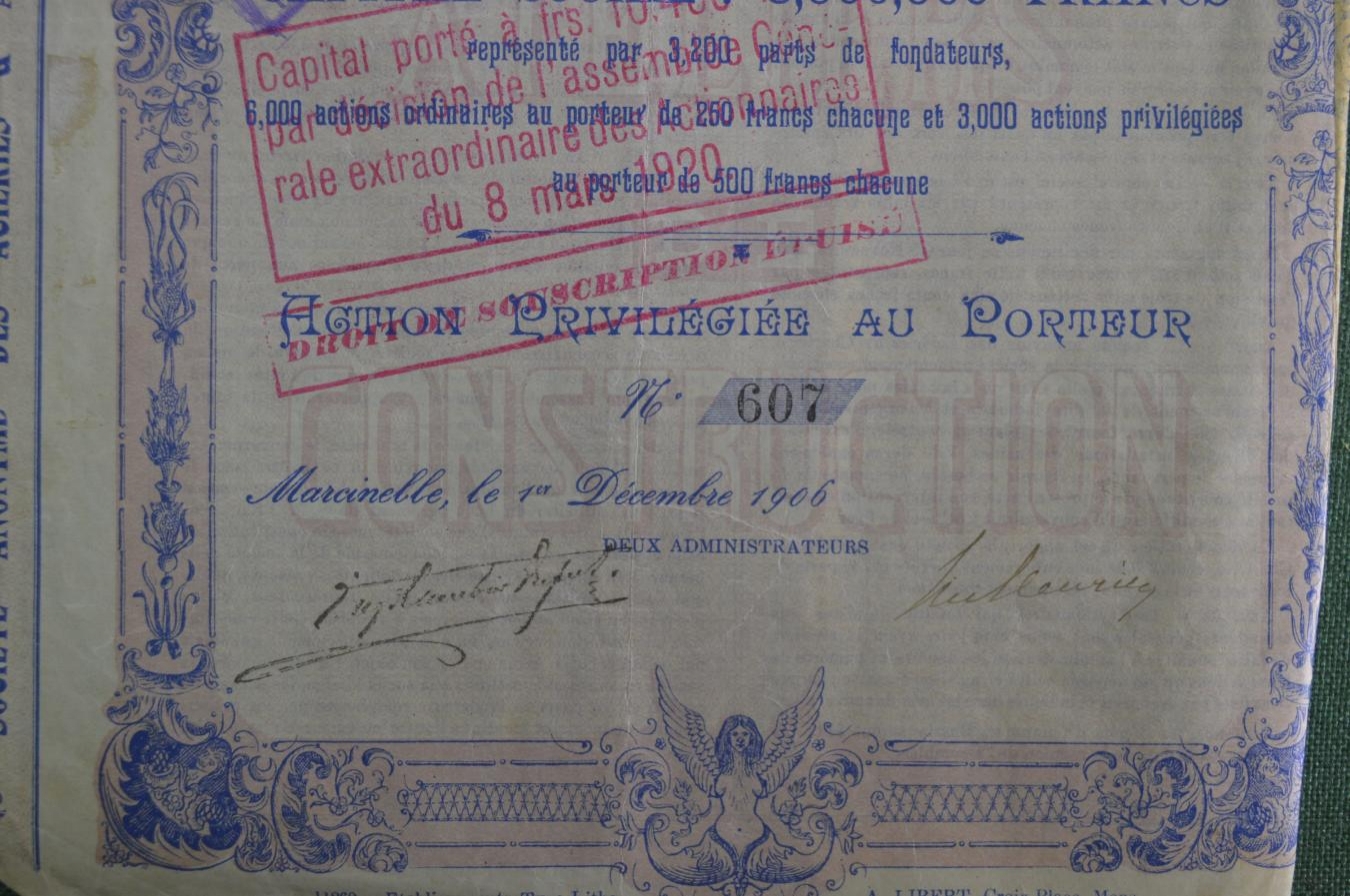 3,000,000 FRANCS
représenté par 3,200 parts de fondateurs,
6,000 actions ordinaires au porteur de 250 francs chacune et 3,000 actions privilégiées
au porteur de 500 francs chacune
Capital porté à frs.
par décision de l'assemblée Géné-
rale extraordinaire des Actionnaires
du 8 mars 1920
DROIT DE SOUSCRIPTION ÉPUISÉ
ACTION PRIVILÉGIÉE AU PORTEUR
N° 607
CONSTRUCTION
Marcinelle, le 1er Décembre 1906
DEUX ADMINISTRATEURS
A. LIBERT, Croix-Place, Mons
SOCIÉTÉ ANONYME DES ACIÉRIES d'